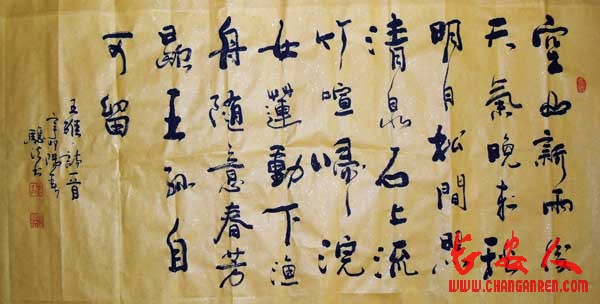 空山新雨後
天氣晚來秋
明月松間照
清泉石上流
竹喧歸浣
女蓮動下漁
舟隨意春芳
歇王孫自
可留
王維詩一首
辛卯陽春
长安人
WWW.CHANGANREN.COM